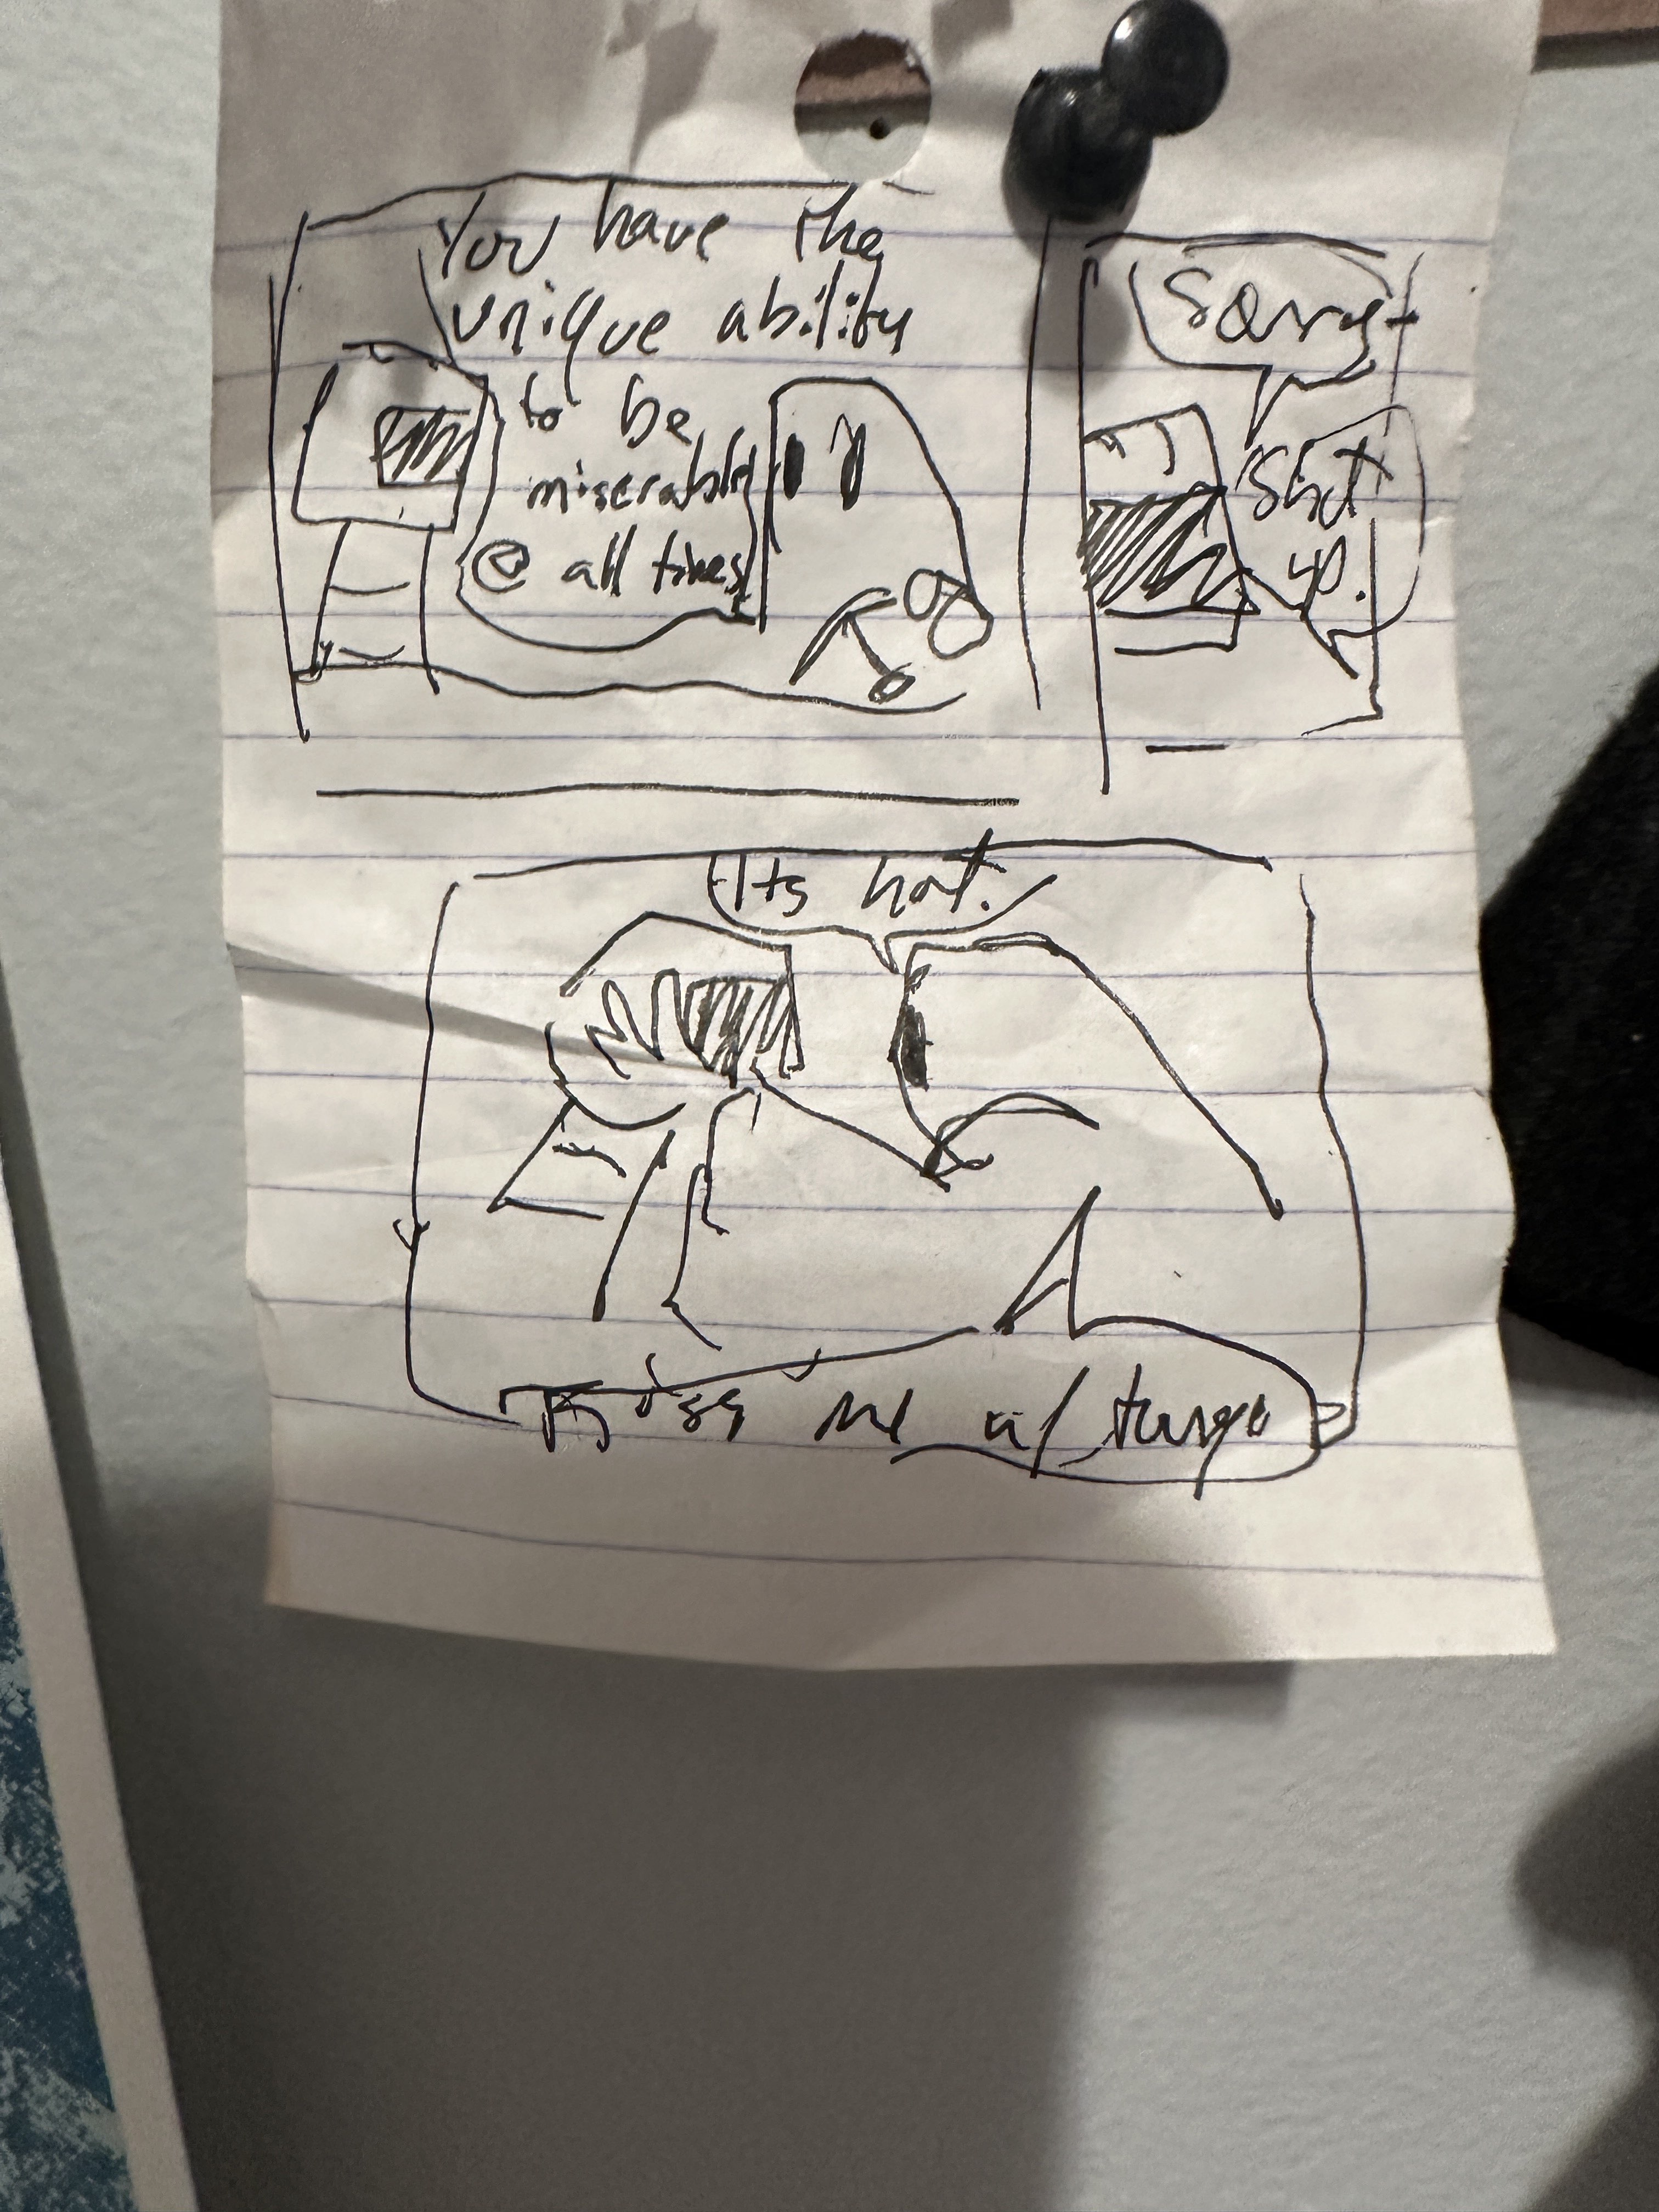 You have the
unique ability
to be
miserable
@ all times
Sorry
Shut
up.
Its hot.
Kiss me w/ tunge